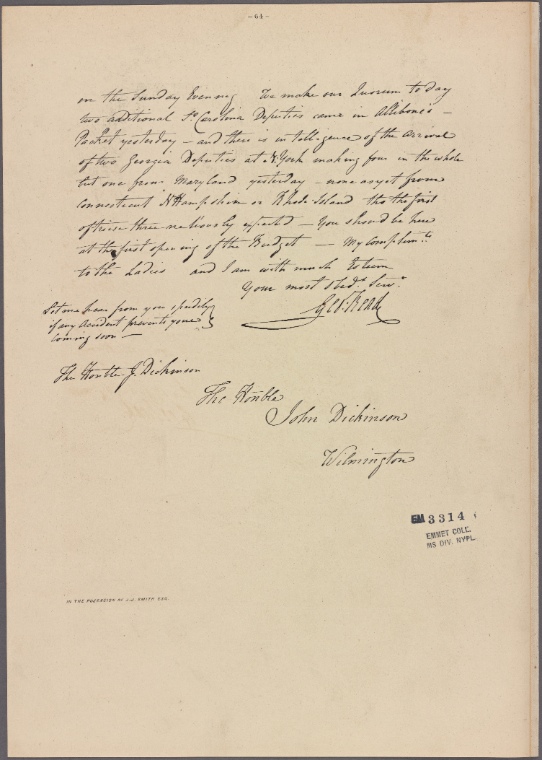 -64-
on the Sunday Evening We make our Quorum to day
two additional So Carolina Deputies came in Allibone's
Packet yesterday – and there is intelligence of the arrival
of two Georgia Deputies at N York making four in the whole
but one from Maryland yesterday – none as yet from
Connecticut N Hampshire or Rhode Island tho the first
of these three anxiously expected – You should be here
at the first opening of the Budget – My Complimts
to the Ladies and I am with much Esteem
Your most Obedt Servt
Geo: Read
Let me hear from you speedily
if any Accident prevents your
coming soon –
The Honble J Dickinson
The Honble
John Dickinson
Wilmington
EM 3314
EMMET COLL.
MS DIV. NYPL.
IN THE POSSESSION OF J.J. SMITH ESQ.